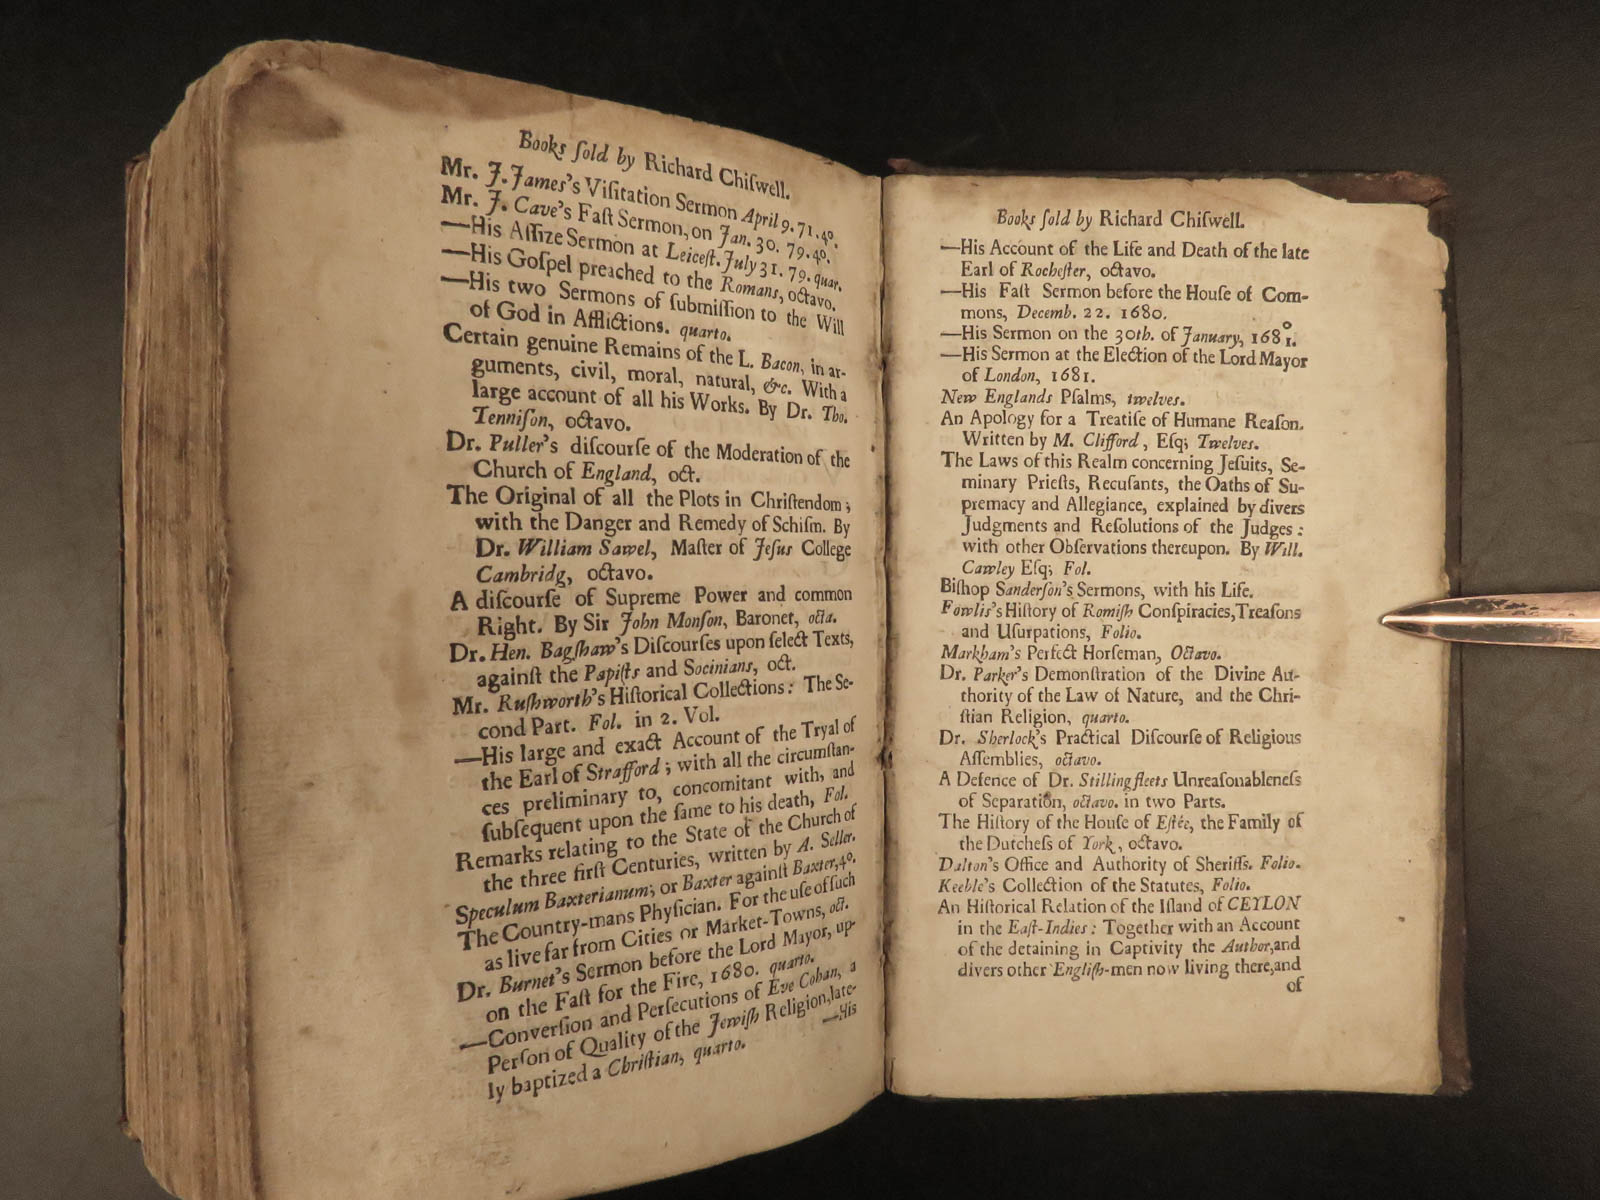 Books ſold by Richard Chiſwell.
Mr. J. James's Viſitation Sermon April 9. 71. 4º.
Mr. J. Cave's Faſt Sermon, on Jan. 30. 79. 4º.
—His Aſſize Sermon at Leiceſt. July 31. 79. quar.
—His Goſpel preached to the Romans, octavo.
—His two Sermons of ſubmiſſion to the Will
of God in Afflictions. quarto.
Certain genuine Remains of the L. Bacon, in ar-
guments, civil, moral, natural, &c. With a
large account of all his Works. By Dr. Tho.
Tenniſon, octavo.
Dr. Puller's diſcourſe of the Moderation of the
Church of England, oct.
The Original of all the Plots in Chriſtendom;
with the Danger and Remedy of Schiſm. By
Dr. William Sawel, Maſter of Jeſus College
Cambridg, octavo.
A diſcourſe of Supreme Power and common
Right. By Sir John Monſon, Baronet, octa.
Dr. Hen. Bagſhaw's Diſcourſes upon ſelect Texts,
againſt the Papiſts and Socinians, oct.
Mr. Ruſhworth's Hiſtorical Collections: The Se-
cond Part. Fol. in 2. Vol.
—His large and exact Account of the Tryal of
the Earl of Strafford; with all the circumſtan-
ces preliminary to, concomitant with, and
ſubſequent upon the ſame to his death, Fol.
Remarks relating to the State of the Church of
the three firſt Centuries, written by A. Seller.
Speculum Baxterianum; or Baxter againſt Baxter, 4º.
The Country-mans Phyſician. For the uſe of ſuch
as live far from Cities or Market-Towns, oct.
Dr. Burnet's Sermon before the Lord Mayor, up-
on the Faſt for the Fire, 1680. quarto.
—Converſion and Perſecutions of Eve Cohan, a
Perſon of Quality of the Jewiſh Religion, late-
ly baptized a Chriſtian, quarto.
—His
Books ſold by Richard Chiſwell.
—His Account of the Life and Death of the late
Earl of Rocheſter, octavo.
—His Faſt Sermon before the Houſe of Com-
mons, Decemb. 22. 1680.
—His Sermon on the 30th. of January, 168 0/1.
—His Sermon at the Election of the Lord Mayor
of London, 1681.
New Englands Pſalms, twelves.
An Apology for a Treatiſe of Humane Reaſon.
Written by M. Clifford, Eſq; Twelves.
The Laws of this Realm concerning Jeſuits, Se-
minary Prieſts, Recuſants, the Oaths of Su-
premacy and Allegiance, explained by divers
Judgments and Reſolutions of the Judges:
with other Obſervations thereupon. By Will.
Cawley Eſq; Fol.
Biſhop Sanderſon's Sermons, with his Life.
Fowlis's Hiſtory of Romiſh Conſpiracies, Treaſons
and Uſurpations, Folio.
Markham's Perfect Horſeman, Octavo.
Dr. Parker's Demonſtration of the Divine Au-
thority of the Law of Nature, and the Chri-
ſtian Religion, quarto.
Dr. Sherlock's Practical Diſcourſe of Religious
Aſſemblies, octavo.
A Defence of Dr. Stillingfleets Unreaſonableneſs
of Separation, octavo. in two Parts.
The Hiſtory of the Houſe of Eſtée, the Family of
the Dutcheſs of York, octavo.
Dalton's Office and Authority of Sheriffs. Folio.
Keeble's Collection of the Statutes, Folio.
An Hiſtorical Relation of the Iſland of CEYLON
in the Eaſt-Indies: Together with an Account
of the detaining in Captivity the Author, and
divers other Engliſh-men now living there, and
of